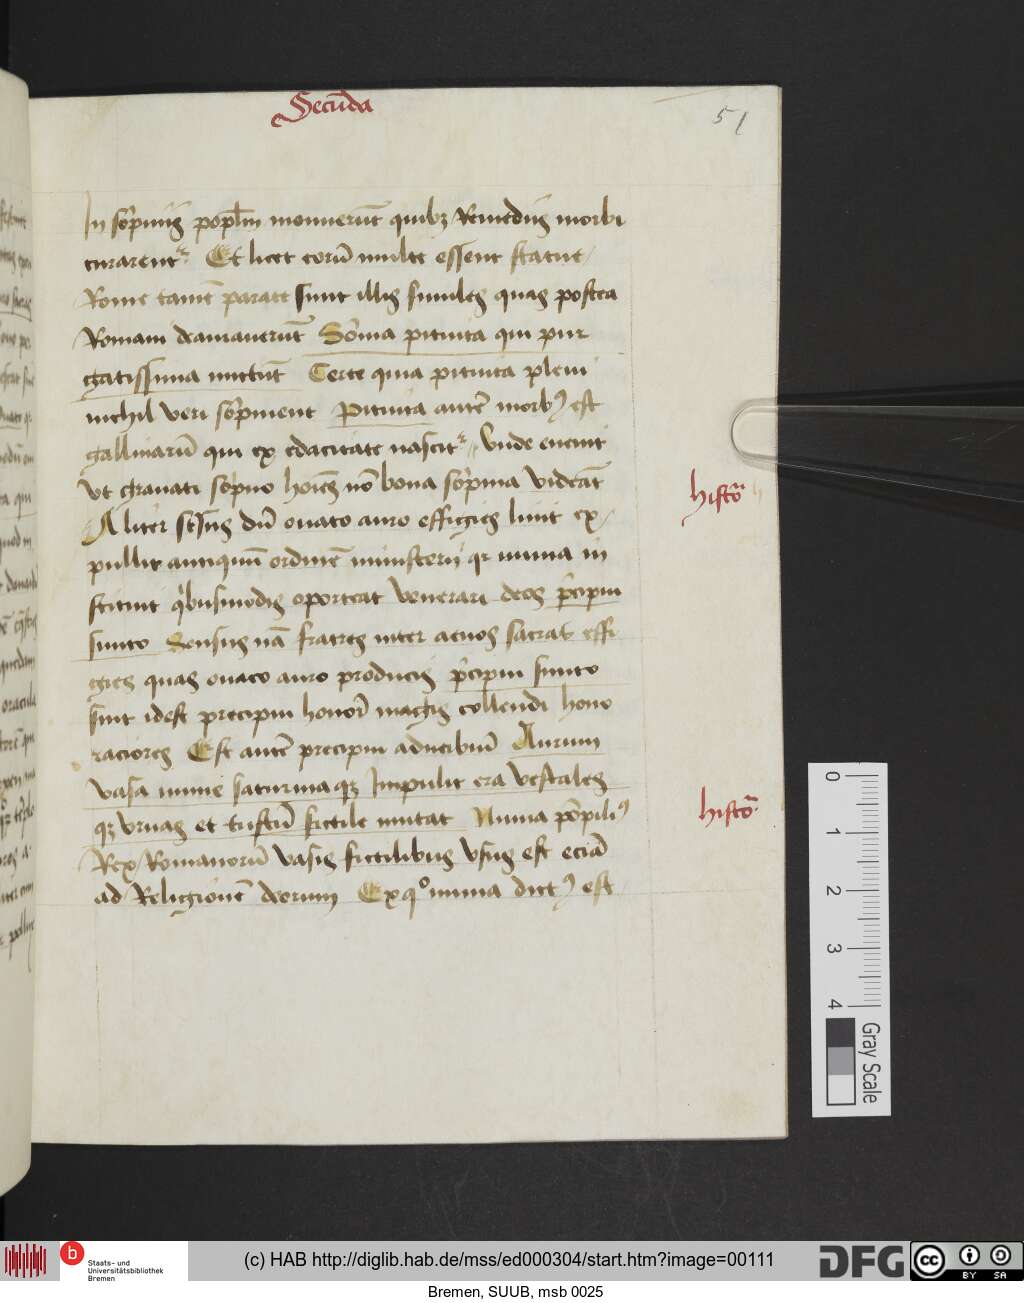 Secūda
51
In sōpniis popl̄m monuerūt quibꝫ Remediis morbi
curarent᷑ Et licet eorū multi essent statue
Rome tamē parate sunt illis similes quas postea
Romam deamauerūt Sōnia pituita qui pur
gatissima mittūt Certe quia pituita pleni
nichil veri sōpment Pituita autē morbꝰ est
gallinarū qui ex edacitate nascit᷑ Vnde euenit
vt grauati sopno hoīes nō bona sōpnia videāt
Aliter sēsus dū ouato auro effigies linit ex
pullit antiquū ordinē ministerii qr numa in
stituit qͥbusmodis oporteat venerari deos p̄cipui
sunto Sensus nā fratres inter aenos sacrat effi
gies quas ouato auro producis p̄cipui sunto
sint idest precipui honorē magis collendi hono
raciores Est autē precipui aduerbiū Aurum
vasa nume saturniaqꝫ Impulit era vestales
qꝫ vrnas et tuscū fictile mutat Numa pōpiliꝰ
Rex Romanorū vasis fictilibus vsus est eciā
ad Religionē deorum Ex qͦ numa dictꝰ est
histōr
histōr
0
1
2
3
4
Gray Scale
b
Staats- und
Universitätsbibliothek
Bremen
(c) HAB http://diglib.hab.de/mss/ed000304/start.htm?image=00111
DFG
cc
BY SA
Bremen, SUUB, msb 0025